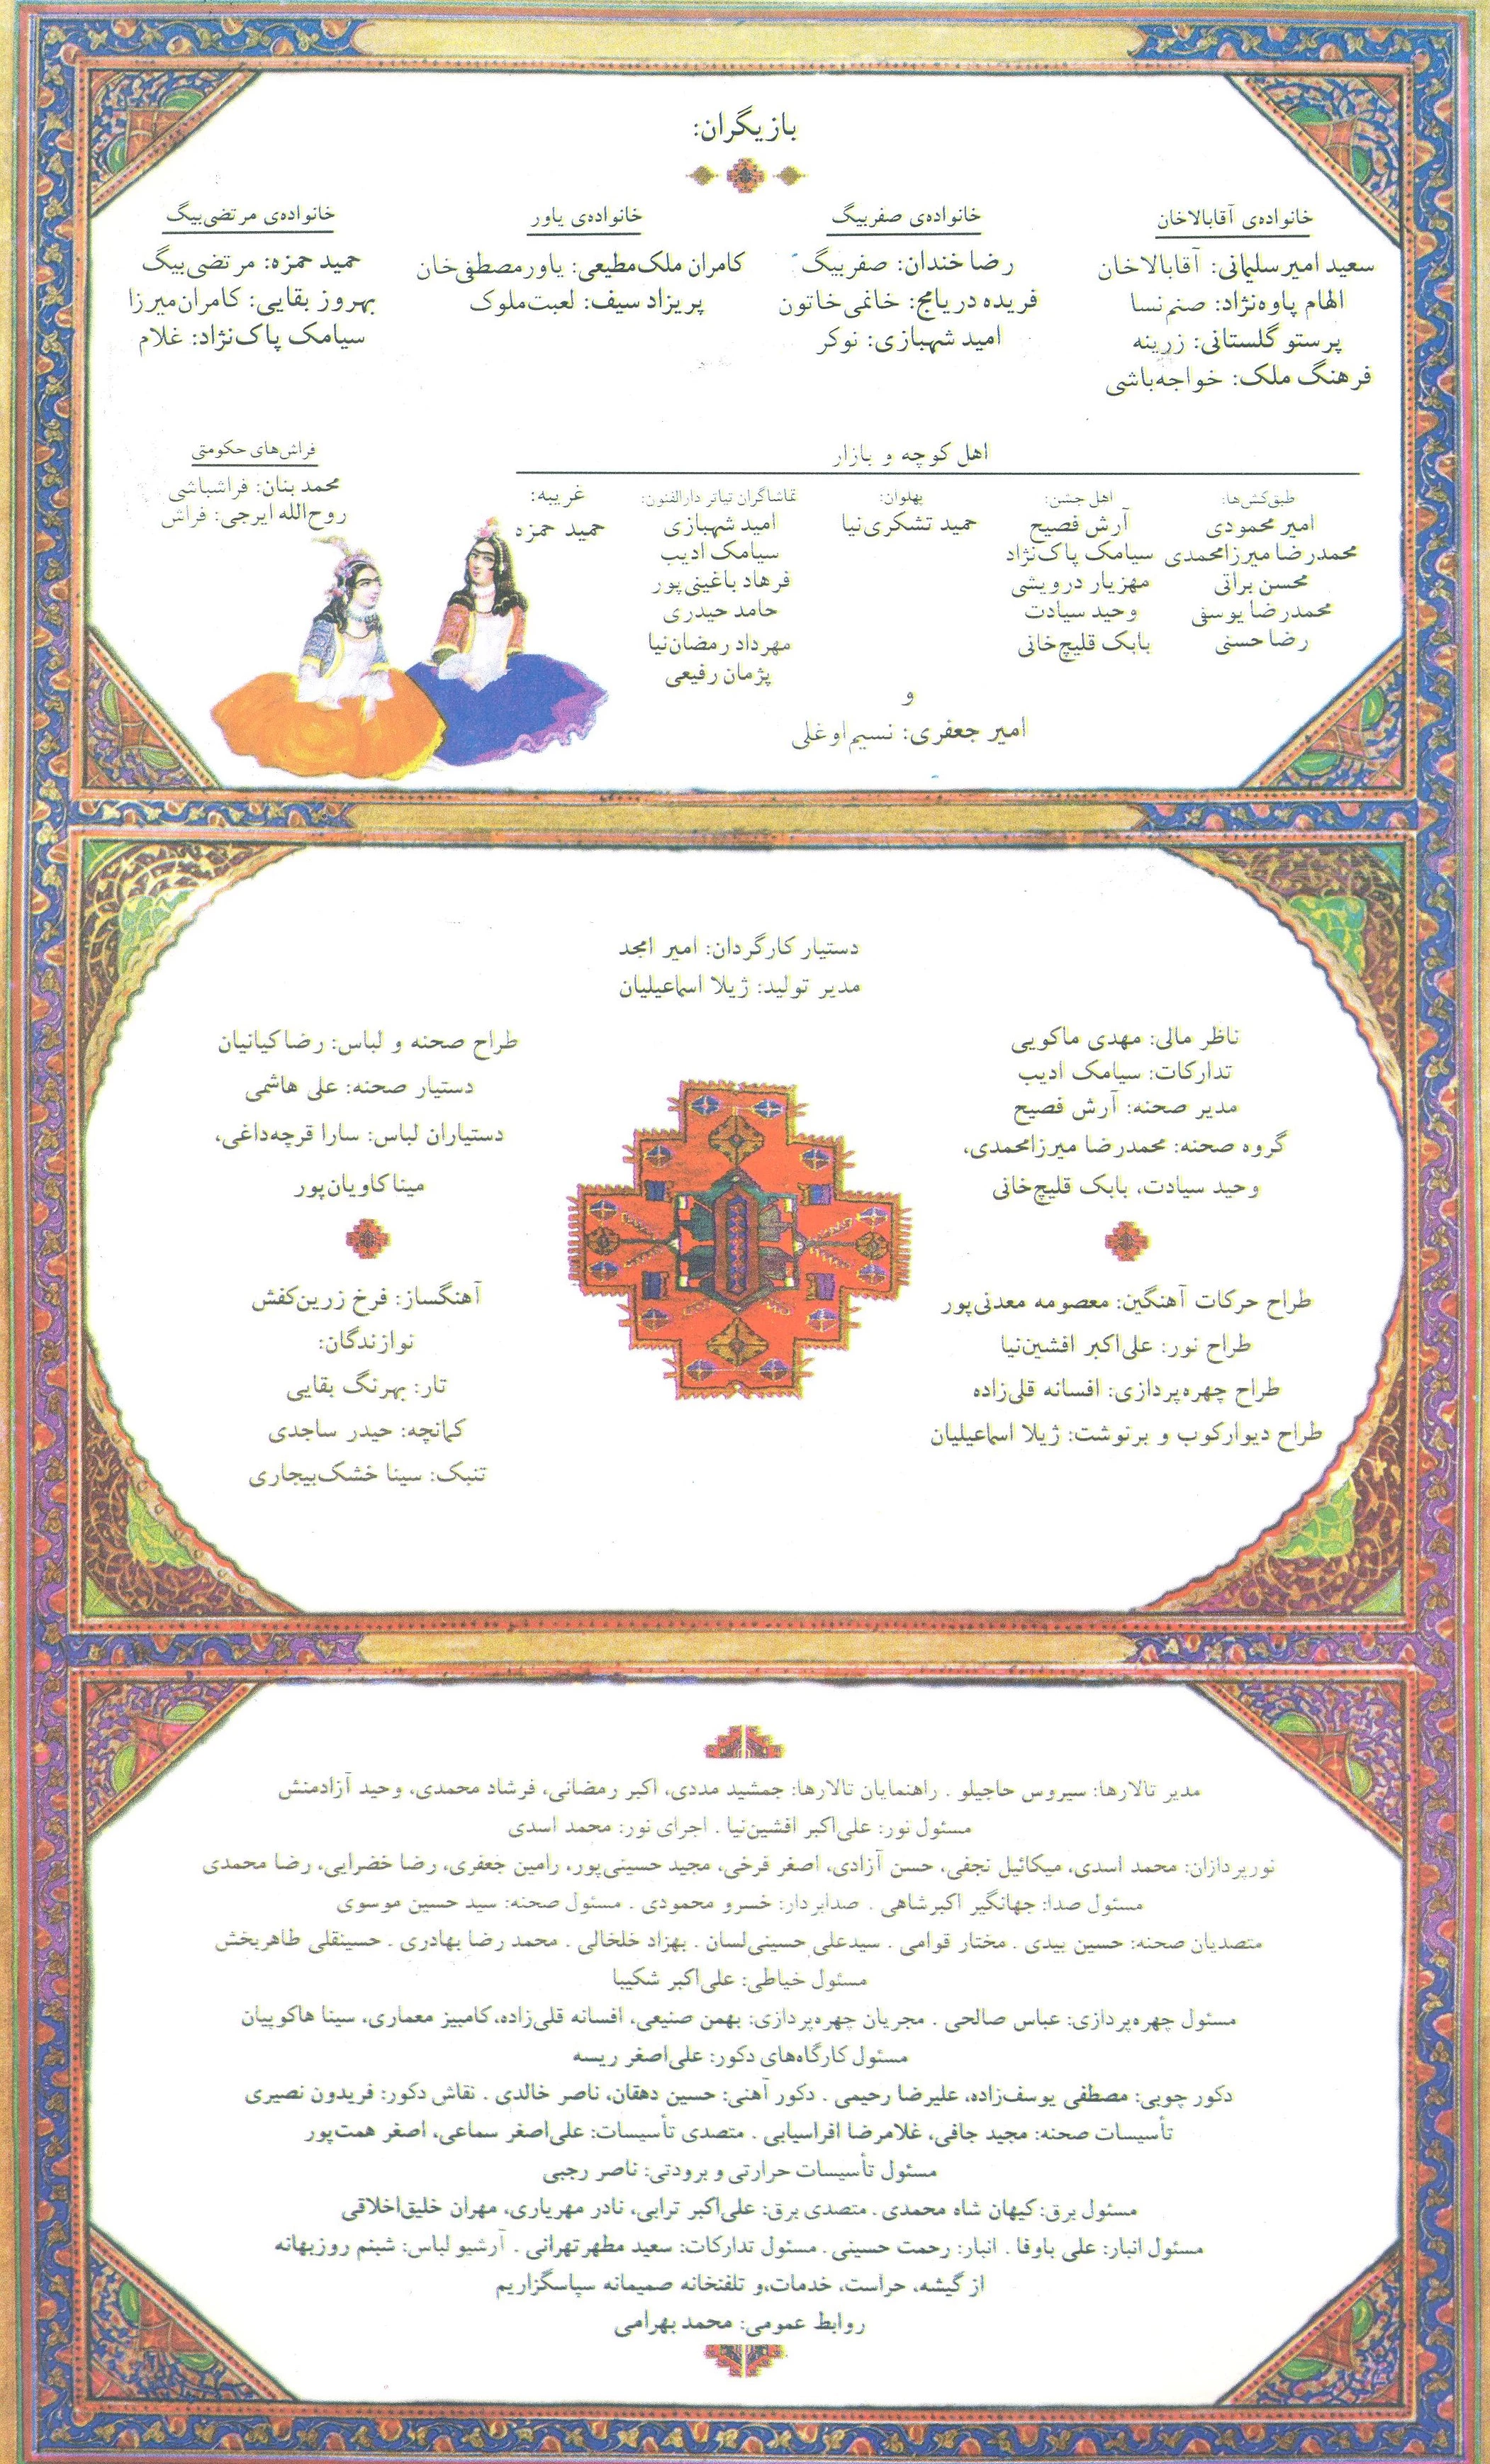 بازیگران:
خانواده‌ی آقابالاخان
سعید امیرسلیمانی: آقابالاخان
الهام پاوه‌نژاد: صنم‌نسا
پرستو گلستانی: زرینه
فرهنگ ملک: خواجه‌باشی
خانواده‌ی صفربیگ
رضا خندان: صفربیگ
فریده دریامج: خانمی‌خاتون
امید شهبازی: نوکر
خانواده‌ی یاور
کامران ملک‌مطیعی: یاورمصطفی‌خان
پریزاد سیف: لعبت‌ملوک
خانواده‌ی مرتضی‌بیگ
حمید حمزه: مرتضی‌بیگ
بهروز بقایی: کامران‌میرزا
سیامک پاک‌نژاد: غلام
اهل کوچه و بازار
طبق‌کش‌ها:
امیر محمودی
محمدرضا میرزامحمدی
محسن براتی
محمدرضا یوسفی
رضا حسنی
اهل جشن:
آرش فصیح
سیامک پاک‌نژاد
مهزیار درویشی
وحید سیادت
بابک قلیچ‌خانی
پهلوان:
حمید تشکری‌نیا
تماشاگران تیاتر دارالفنون:
امید شهبازی
سیامک ادیب
فرهاد باغینی‌پور
حامد حیدری
مهرداد رمضان‌نیا
پژمان رفیعی
غریبه:
حمید حمزه
فراش‌های حکومتی
محمد بنان: فراشباشی
روح‌الله ایرجی: فراش
و
امیر جعفری: نسیم‌اوغلی
دستیار کارگردان: امیر امجد
مدیر تولید: ژیلا اسماعیلیان
ناظر مالی: مهدی ماکویی
تدارکات: سیامک ادیب
مدیر صحنه: آرش فصیح
گروه صحنه: محمدرضا میرزامحمدی،
وحید سیادت، بابک قلیچ‌خانی
طراح صحنه و لباس: رضا کیانیان
دستیار صحنه: علی هاشمی
دستیاران لباس: سارا قرچه‌داغی،
مینا کاویان‌پور
طراح حرکات آهنگین: معصومه معدنی‌پور
طراح نور: علی‌اکبر افشین‌نیا
طراح چهره‌پردازی: افسانه قلی‌زاده
طراح دیوارکوب و برنوشت: ژیلا اسماعیلیان
آهنگساز: فرخ زرین‌کفش
نوازندگان:
تار: بهرنگ بقایی
کمانچه: حیدر ساجدی
تنبک: سینا خشک‌بیجاری
مدیر تالارها: سیروس حاجیلو . راهنمایان تالارها: جمشید مددی، اکبر رمضانی، فرشاد محمدی، وحید آزادمنش
مسئول نور: علی‌اکبر افشین‌نیا . اجرای نور: محمد اسدی
نورپردازان: محمد اسدی، میکائیل نجفی، حسن آزادی، اصغر فرخی، مجید حسینی‌پور، رامین جعفری، رضا خضرایی، رضا محمدی
مسئول صدا: جهانگیر اکبرشاهی . صدابردار: خسرو محمودی . مسئول صحنه: سید حسین موسوی
متصدیان صحنه: حسین بیدی . مختار قوامی . سیدعلی حسینی‌لسان . بهزاد خلخالی . محمد رضا بهادری . حسینقلی طاهربخش
مسئول خیاطی: علی‌اکبر شکیبا
مسئول چهره‌پردازی: عباس صالحی . مجریان چهره‌پردازی: بهمن صنیعی، افسانه قلی‌زاده، کامبیز معماری، سینا هاکوپیان
مسئول کارگاه‌های دکور: علی‌اصغر ریسه
دکور چوبی: مصطفی یوسف‌زاده، علیرضا رحیمی . دکور آهنی: حسین دهقان، ناصر خالدی . نقاش دکور: فریدون نصیری
تأسیسات صحنه: مجید جافی، غلامرضا افراسیابی . متصدی تأسیسات: علی‌اصغر سماعی، اصغر همت‌پور
مسئول تأسیسات حرارتی و برودتی: ناصر رجبی
مسئول برق: کیهان شاه محمدی . متصدی برق: علی‌اکبر ترابی، نادر مهریاری، مهران خلیق‌اخلاقی
مسئول انبار: علی باوفا . انبار: رحمت حسینی . مسئول تدارکات: سعید مطهرتهرانی . آرشیو لباس: شبنم روزبهانه
از گیشه، حراست، خدمات،و تلفنخانه صمیمانه سپاسگزاریم
روابط عمومی: محمد بهرامی